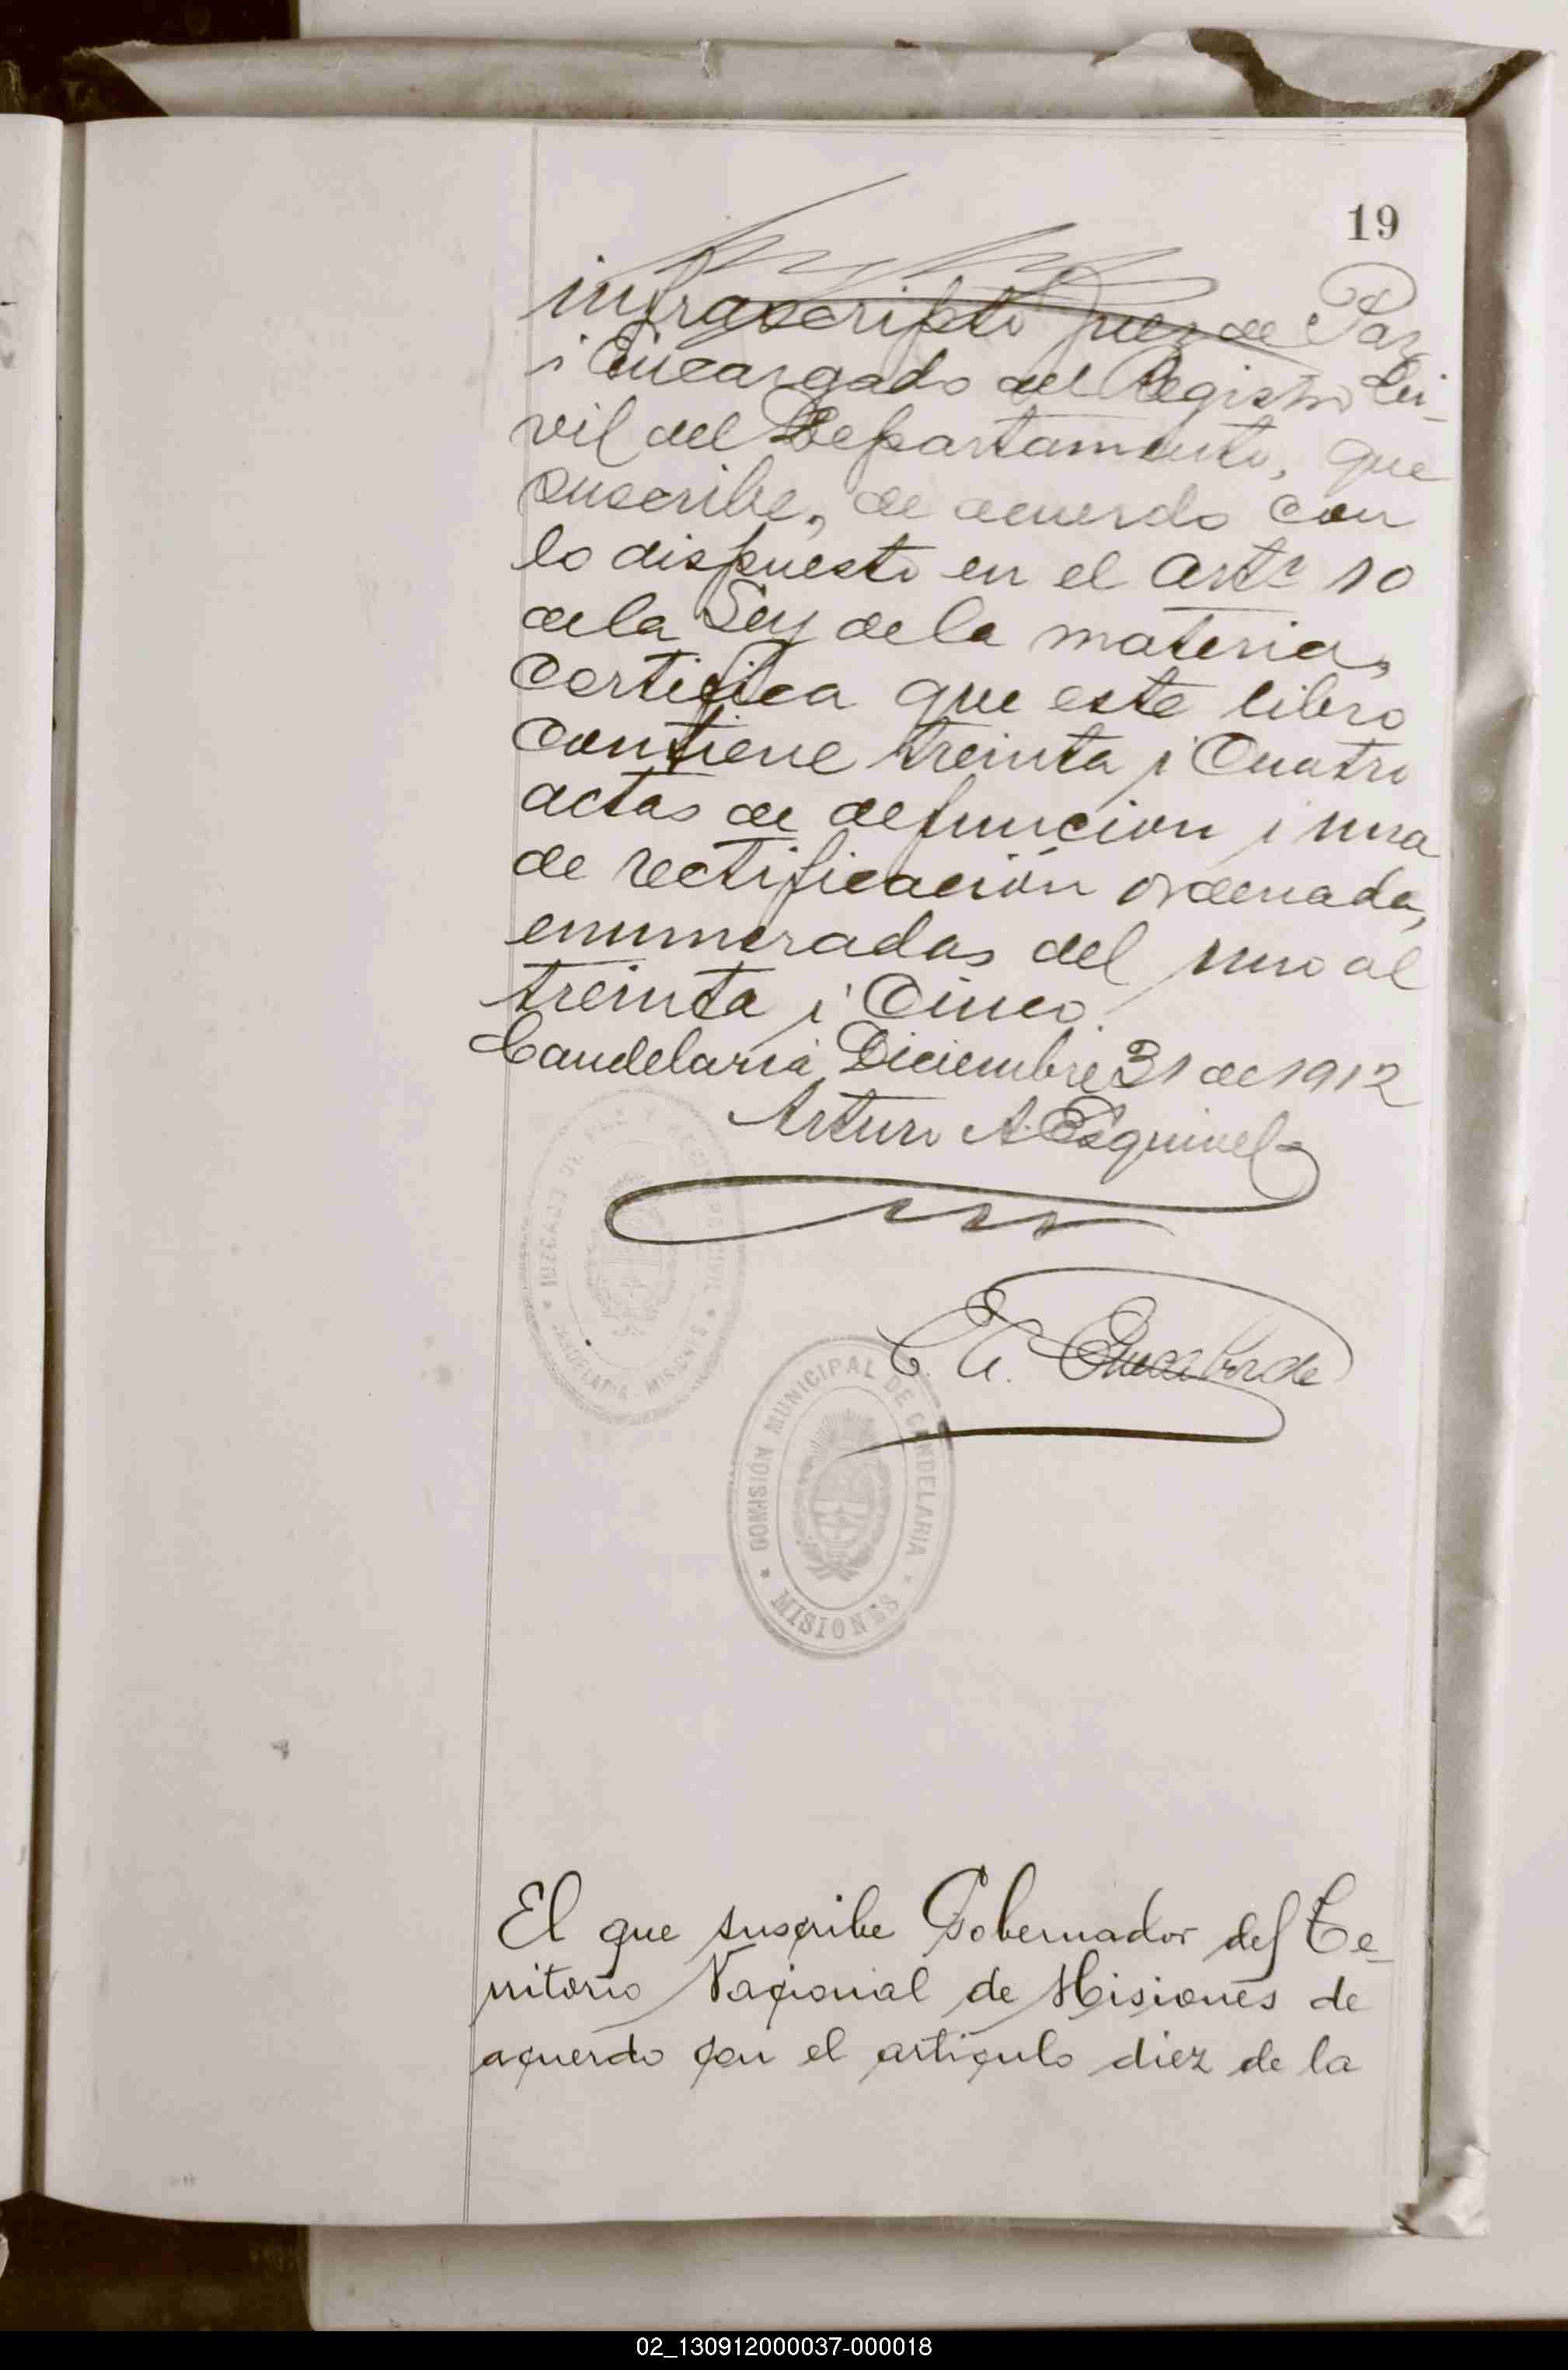 19
infrascripto Juez de Paz
i Encargado del Registro Ci-
vil del Departamento, que
suscribe, de acuerdo con
lo dispuesto en el Artº 10
de la Ley de la materia,
Certifica que este libro
Contiene treinta i Cuatro
actas de defuncion i una
de rectificación ordenada,
enumeradas del uno al
treinta i Cinco.
Candelaria, Diciembre 31 de 1912
Arturo A. Esquivel
JUZGADO DE PAZ Y REGISTRO CIVIL
CANDELARIA - MISIONES
COMISIÓN MUNICIPAL DE CANDELARIA
MISIONES
El que suscribe Gobernador del Te-
rritorio Nacional de Misiones de
acuerdo con el artículo diez de la
02_130912000037-000018